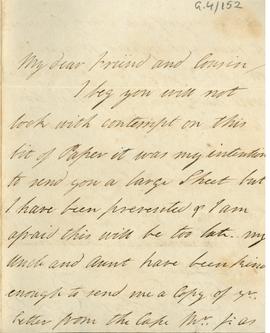 G.4/152
My dear friend and Cousin
I beg you will not
look with contempt on this
bit of Paper it was my intention
to send you a large Sheet but
I have been prevented & I am
afraid this will be too late. my
Uncle and Aunt have been kind
enough to send me a Copy of yr.
letter from the Cape Mr. as